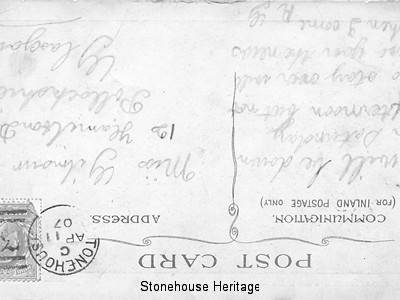 POST CARD
COMMUNICATION.
(FOR INLAND POSTAGE ONLY)
ADDRESS.
STONEHOUSE
C
AP 11
07
will be down
on Saturday
afternoon but not
to stay over will
give you the news
when I come
Miss Gilmour
12 Hamilton
Pollockshields
Glasgow
Stonehouse Heritage